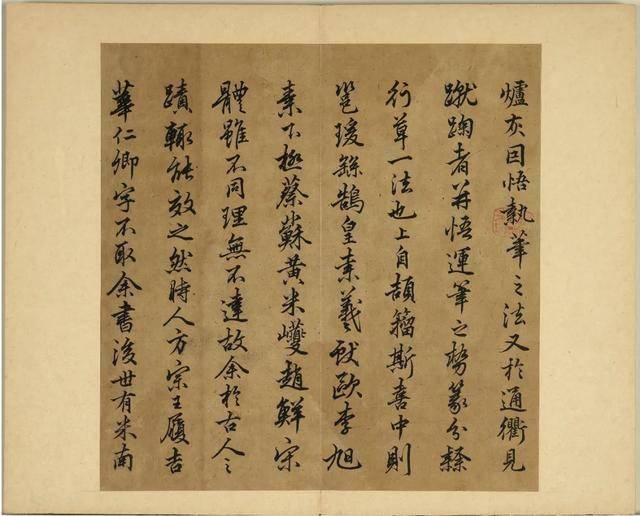 爐灰囙悟執筆之法又於通衢見
蹴踘者并悟運筆之勢篆分隸
行草一法也上自頡籀斯喜中則
邕瑗繇鵠皇索羲獻歐李旭
素下極蔡蘇黃米巙趙鮮宋
體雖不同理無不達故余於古人之
蹟輒能效之然時人方宗王履吉
華仁卿字不取余書後世有米南